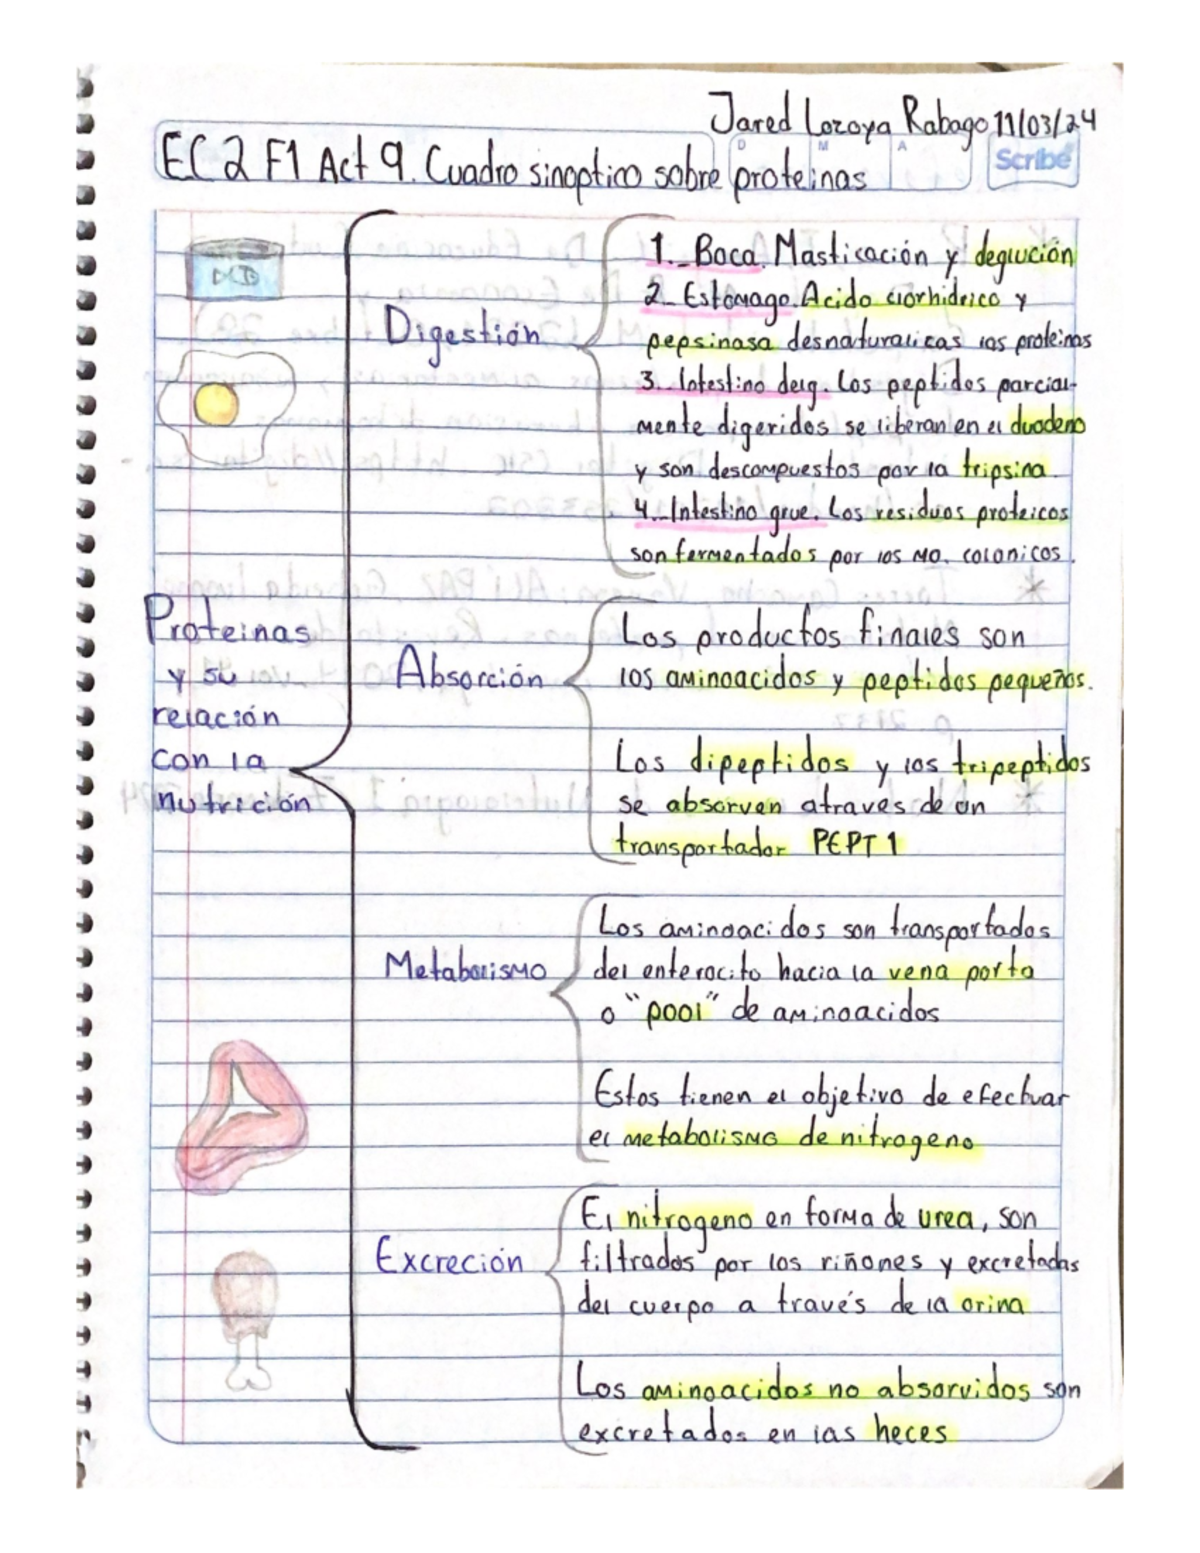 Jared Lozoya Rabago 11/03/24
EC2 F1 Act 9. Cuadro sinoptico sobre proteinas
D M A
Scribe
Proteinas
y su
relación
con la
nutrición
Digestión
1._ Boca. Masticación y deglución
2_ Estómago. Acido clorhidrico y
pepsinasa desnaturalicas las proteinas
3._ Intestino delg. Los peptidos parcial-
mente digeridos se liberan en el duodeno
y son descompuestos por la tripsina.
4._ Intestino grue. Los residuos proteicos
son fermentados por los MO. colonicos.
Absorción
Los productos finales son
los aminoacidos y peptidos pequeños.
Los dipeptidos y los tripeptidos
se absorven através de un
transportador PEPT 1
Metabolismo
Los aminoacidos son transportados
del enterocito hacia la vena porta
o "pool" de aminoacidos
Estos tienen el objetivo de efectuar
el metabolismo de nitrogeno
Excreción
El nitrogeno en forma de urea, son
filtrados por los riñones y excretadas
del cuerpo a través de la orina
Los aminoacidos no absorvidos son
excretados en las heces